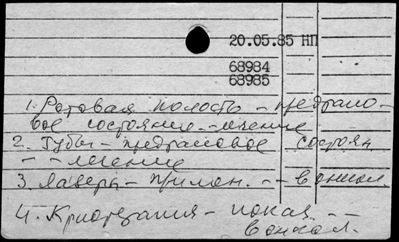 20.05.85 НП
68984
68985
1. Ротовая полость - предрако-
вое состояние - лечение
2. Губы - предраковое состоян
- - лечение
3. Лазеры - примен. - - в онкол.
4. Криотерапия - показ. - -
в онкол.